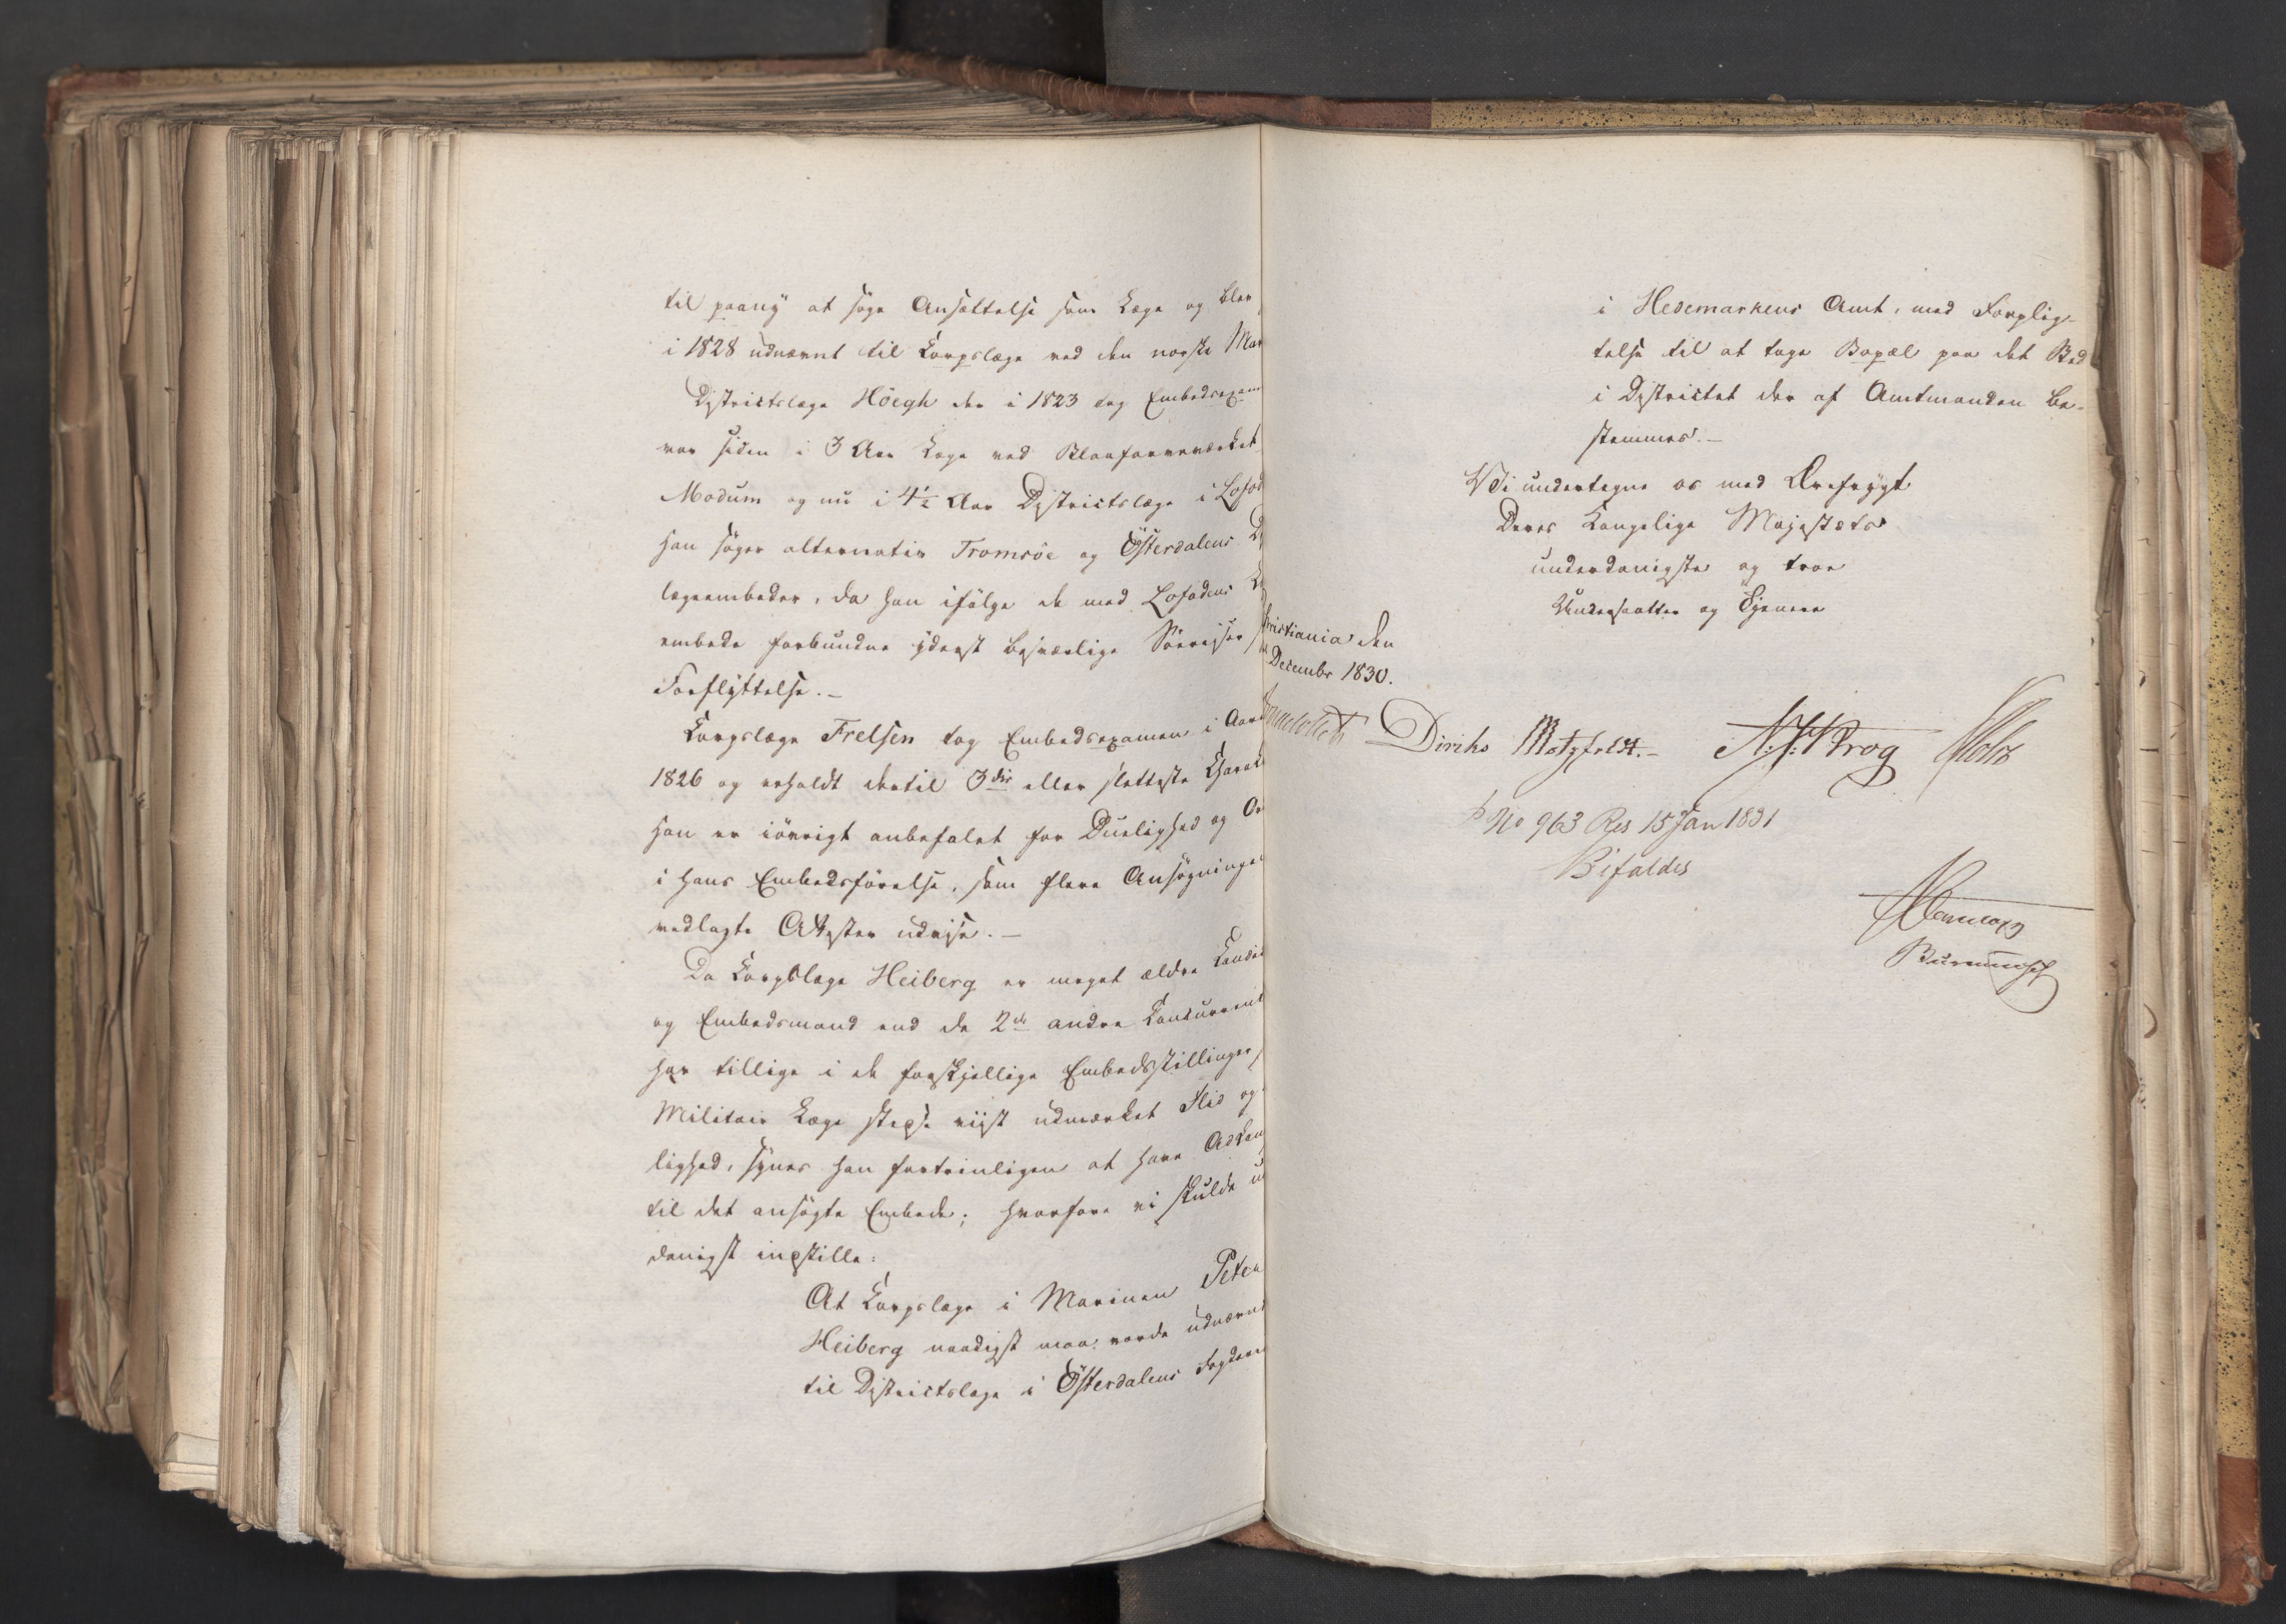 til paany at søge Ansættelse som Læge og blev
i 1828 udnævnt til Korpslæge ved den norske Mar
Districtslæge Höegh der i 1823 tog Embedsexam
var siden i 3 Aar Læge ved Blaafarveværket
Modum og nu i 4½ Aar Districtslæge i Lofod
han søger alternativ Tromsöe og Österdalens D
lægeembeder, da han ifølge de med Lofodens L
embede forbundne yderst besværlige Söereiser
Forflyttelse.-
Korpslæge Frelsen tog Embedsexamen i Aar
1826 og erholdt dertil 3die eller sletteste Charak
han er iövrigt anbefalet for Duelighed og Or
i hans Embedsförelse, som flere Ansøgningen
vedlagte Attester udvise.-
Da Korpslæge Heiberg er meget ældre Candid
og Embedsmand end de 2de andre Concurrent
har tillige i de forskjellige Embedsstillinger
Militair Læge stedse viist udmærket Flid og
lighed, synes han fortrinligen at have Adkom
til det ansøgte Embede; hvorfore vi skulde u
danigst indstille:
At Korpslæge i Marinen Peter
Heiberg naadigst maa vorde udnævnt
til Districtslæge i Österdalens Fogderi
i Hedemarkens Amt, med Forplig-
telse til at tage Bopæl paa det Sted
i Districtet der af Amtmanden be-
stemmes.-
Vi undertegne os med Ærefrygt
Deres Kongelige Majestæts
underdanigste og troe
Undersaatter og Tjenere
hristiania den
Decembr 1830.
Diriks Motzfeldt.- Krog Holst
No 963 Res 15 Jan 1831
Bifaldes